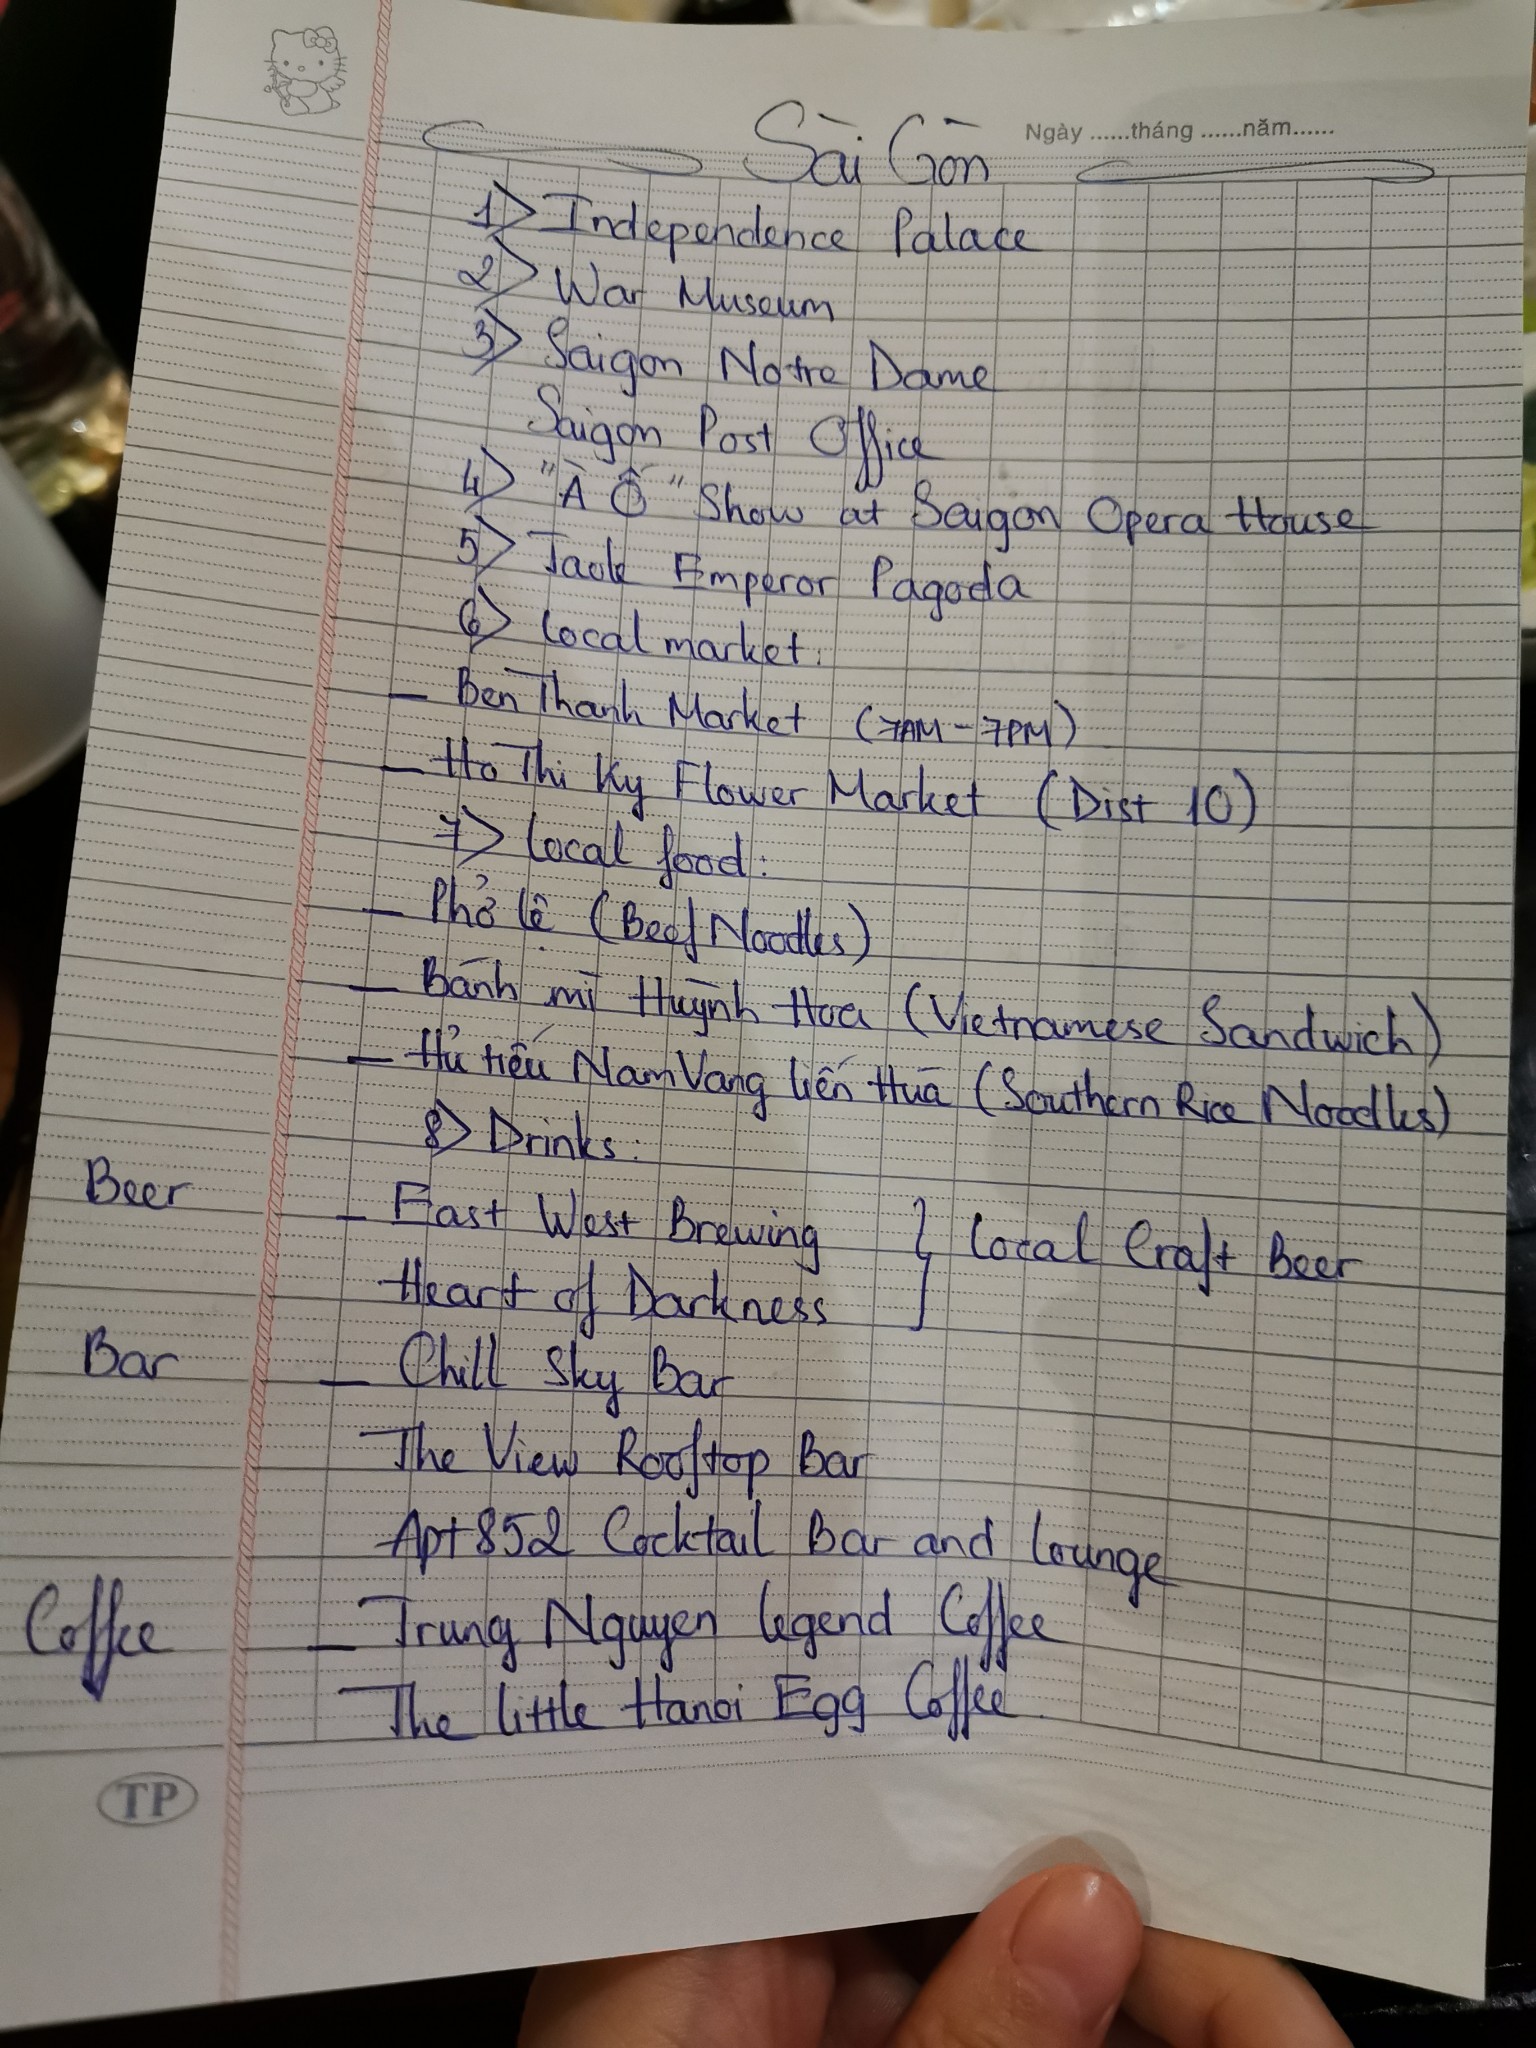 Sài Gòn
Ngày ......tháng ......năm......
1> Independence Palace
2> War Museum
3> Saigon Notre Dame
Saigon Post Office
4> "À Ố" Show at Saigon Opera House
5> Jade Emperor Pagoda
6> Local market:
- Ben Thanh Market (7AM - 7PM)
- Ho Thi Ky Flower Market (Dist 10)
7> Local food:
- Phở Lệ (Beef Noodles)
- Bánh mì Huỳnh Hoa (Vietnamese Sandwich)
- Hủ tiếu Nam Vang Liến Húa (Southern Rice Noodles)
8> Drinks:
Beer - East West Brewing } Local Craft Beer
Heart of Darkness
Bar - Chill Sky Bar
The View Rooftop Bar
Apt 852 Cocktail Bar and Lounge
Coffee - Trung Nguyen Legend Coffee
The Little Hanoi Egg Coffee
TP